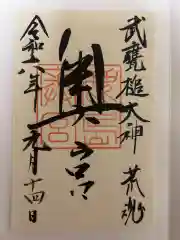 武甕槌大神 荒魂
奥宮
令和六年 元月十四日